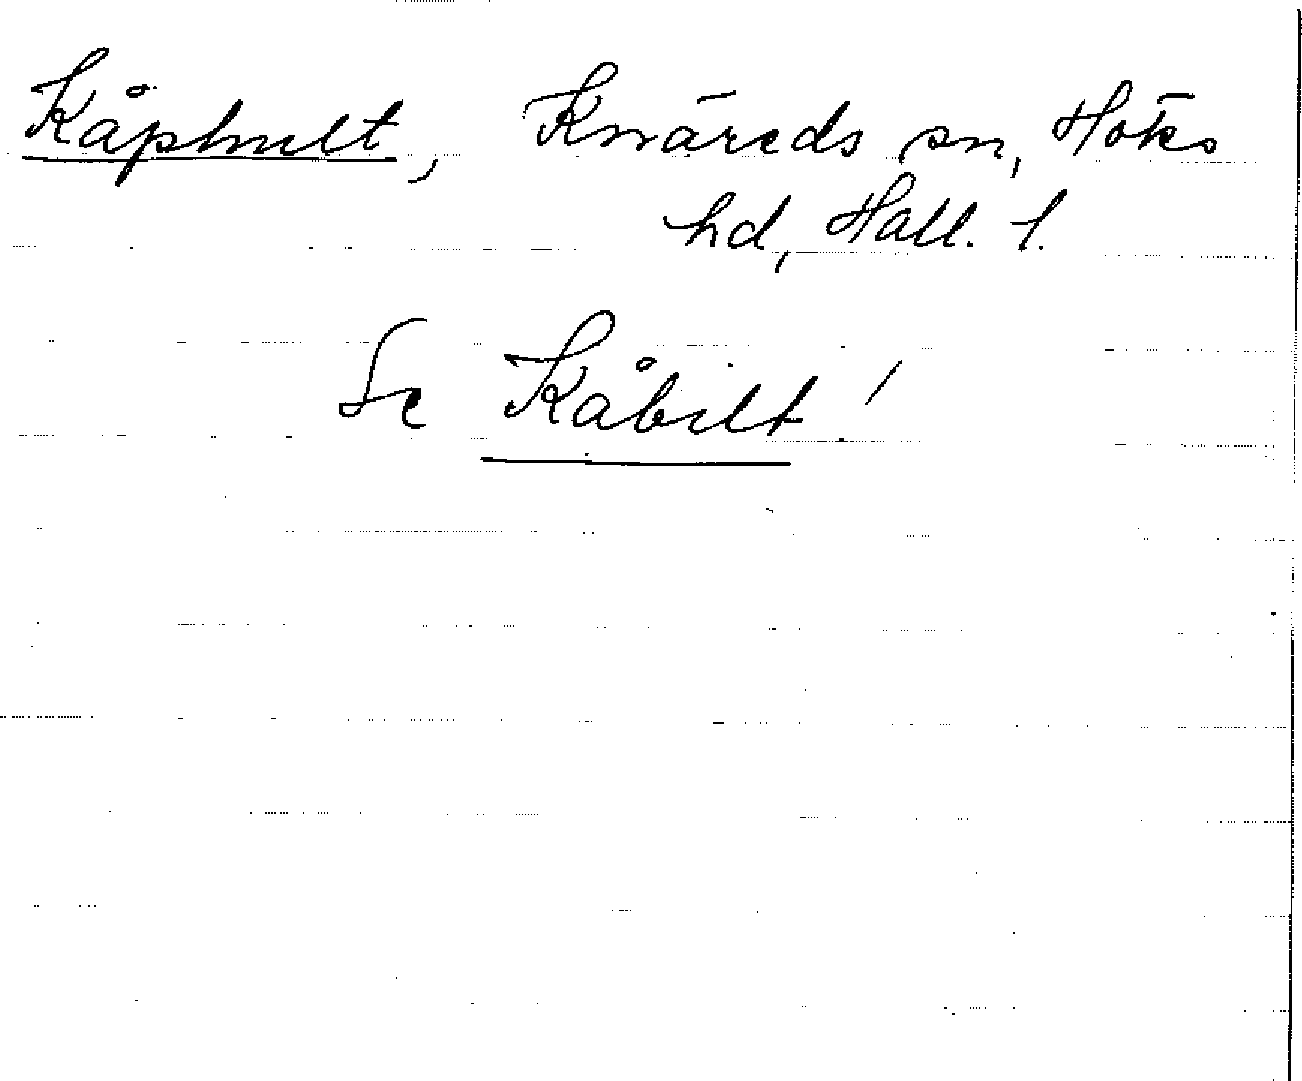 Kåphult, Knäreds sn, Höks
hd, Hall. l.
Se Kåbilt!